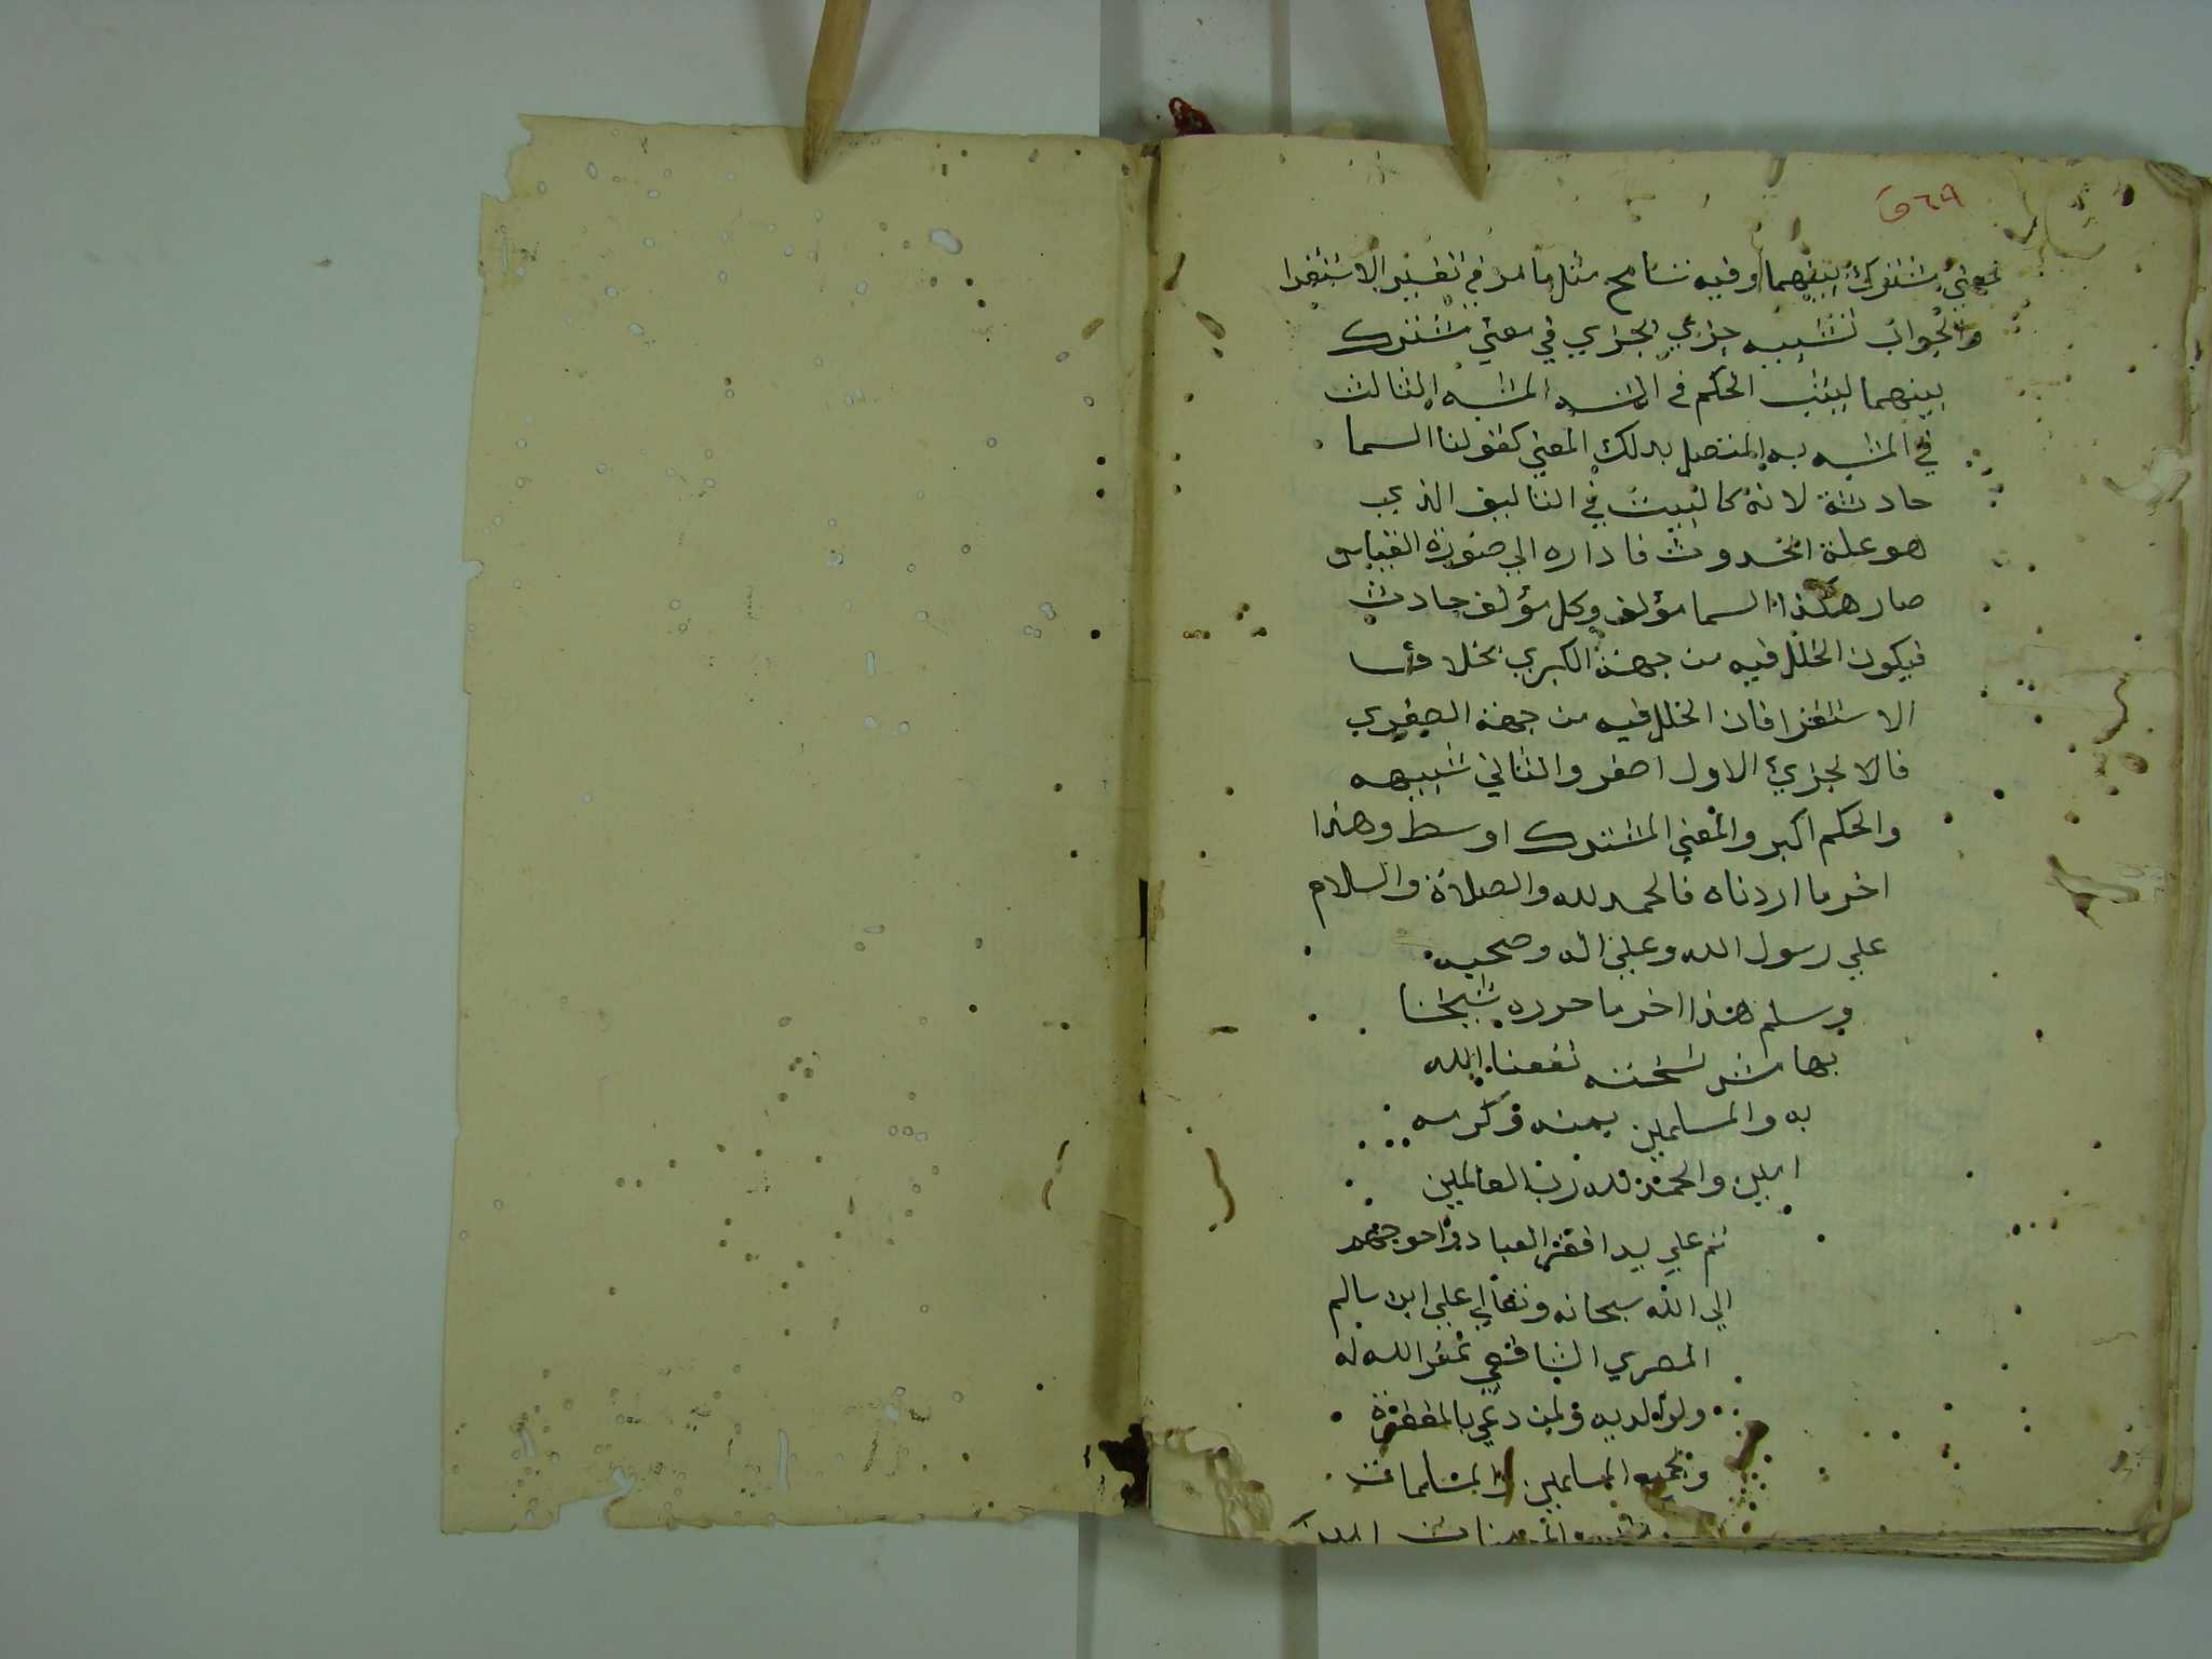 ٥٦٩
لمعني مشترك بينهما وفيه تسامح مثل ما مر في تفسير الاستقرا
والجواب تشبيه جزءي بجزءي في معني مشترك
بينهما ليثبت الحكم في المشبه المشبه الثالث
في المشبه به المتصل بذلك المعني كقولنا السما
حادثة لانه كالبيت في التاليف الذي
هو علة الحدوث فاداره الي صورة القياس
صار هكذا السما مؤلف وكل مؤلف حادث
فيكون الخلل فيه من جهة الكبري بخلاف
الاستقرا فان الخلل فيه من جهة الصغري
فالالجزيء الاول اصغر والثاني شبيهه
والحكم اكبر والمعني المشترك اوسط وهذا
اخر ما اردناه فالحمد لله والصلاة والسلام
علي رسول الله وعلي اله وصحبه
وسلم هذا اخر ما حرره شيخنا
بهامش نسخته نفعنا الله
به والمسلمين بمنه وكرمه
امين والحمد لله رب العالمين
تم علي يد افقر العباد واحوجهم
الي الله سبحانه وتعالي علي ابن سالم
المصري الشافعي غفر الله له
ولوالديه ولمن دعي بالمغفرة
ولجميع المسلمين والمسلمات